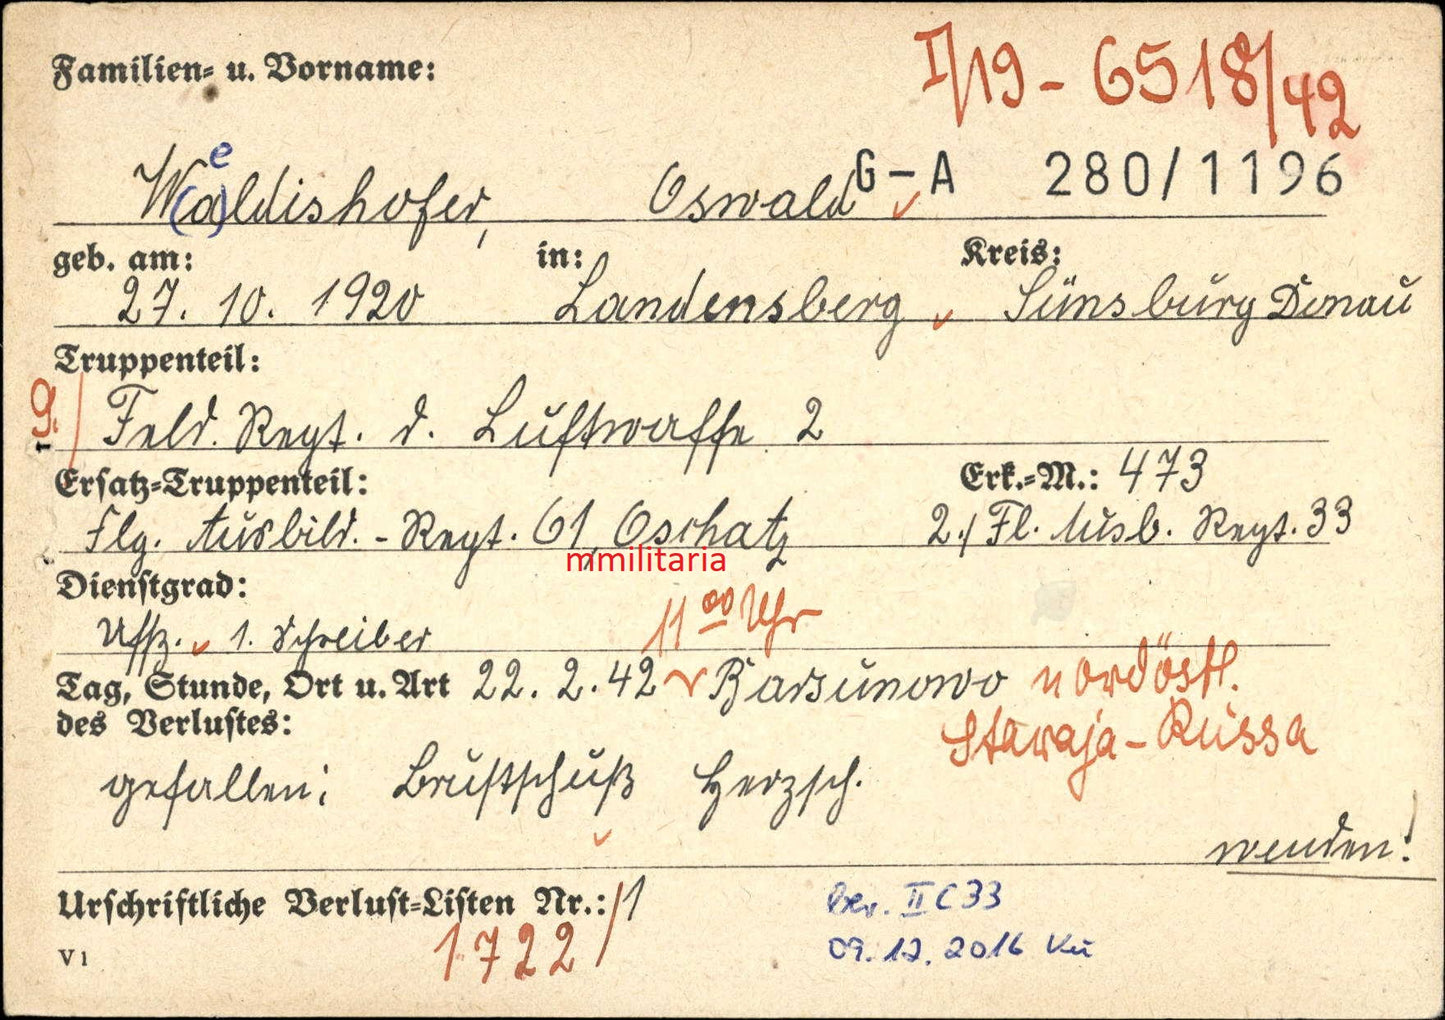 I/19 - 6518/42
Familien- u. Vorname:
e
W(a)ldishofer, Oswald G-A 280/1196
geb. am: in: Kreis:
27. 10. 1920 Landensberg Günsburg Donau
Truppenteil:
9./ Feld. Regt. d. Luftwaffe 2
Ersatz-Truppenteil: Erk.-M.: 473
Flg. Ausbild. - Regt. 61, Oschatz 2./ Fl. Ausb. Regt. 33
mmilitaria
Dienstgrad: 11 00 Uhr
Uffz. 1. Schreiber
Tag, Stunde, Ort u. Art 22. 2. 42 Barsunowo nordöstl.
des Verlustes: Staraja-Russa
gefallen; Brustschuß Herzsch.
wenden!
Urschriftliche Verlust-Listen Nr.: 1
1722/
II C 33
V 1 09. 12. 2016 Kü